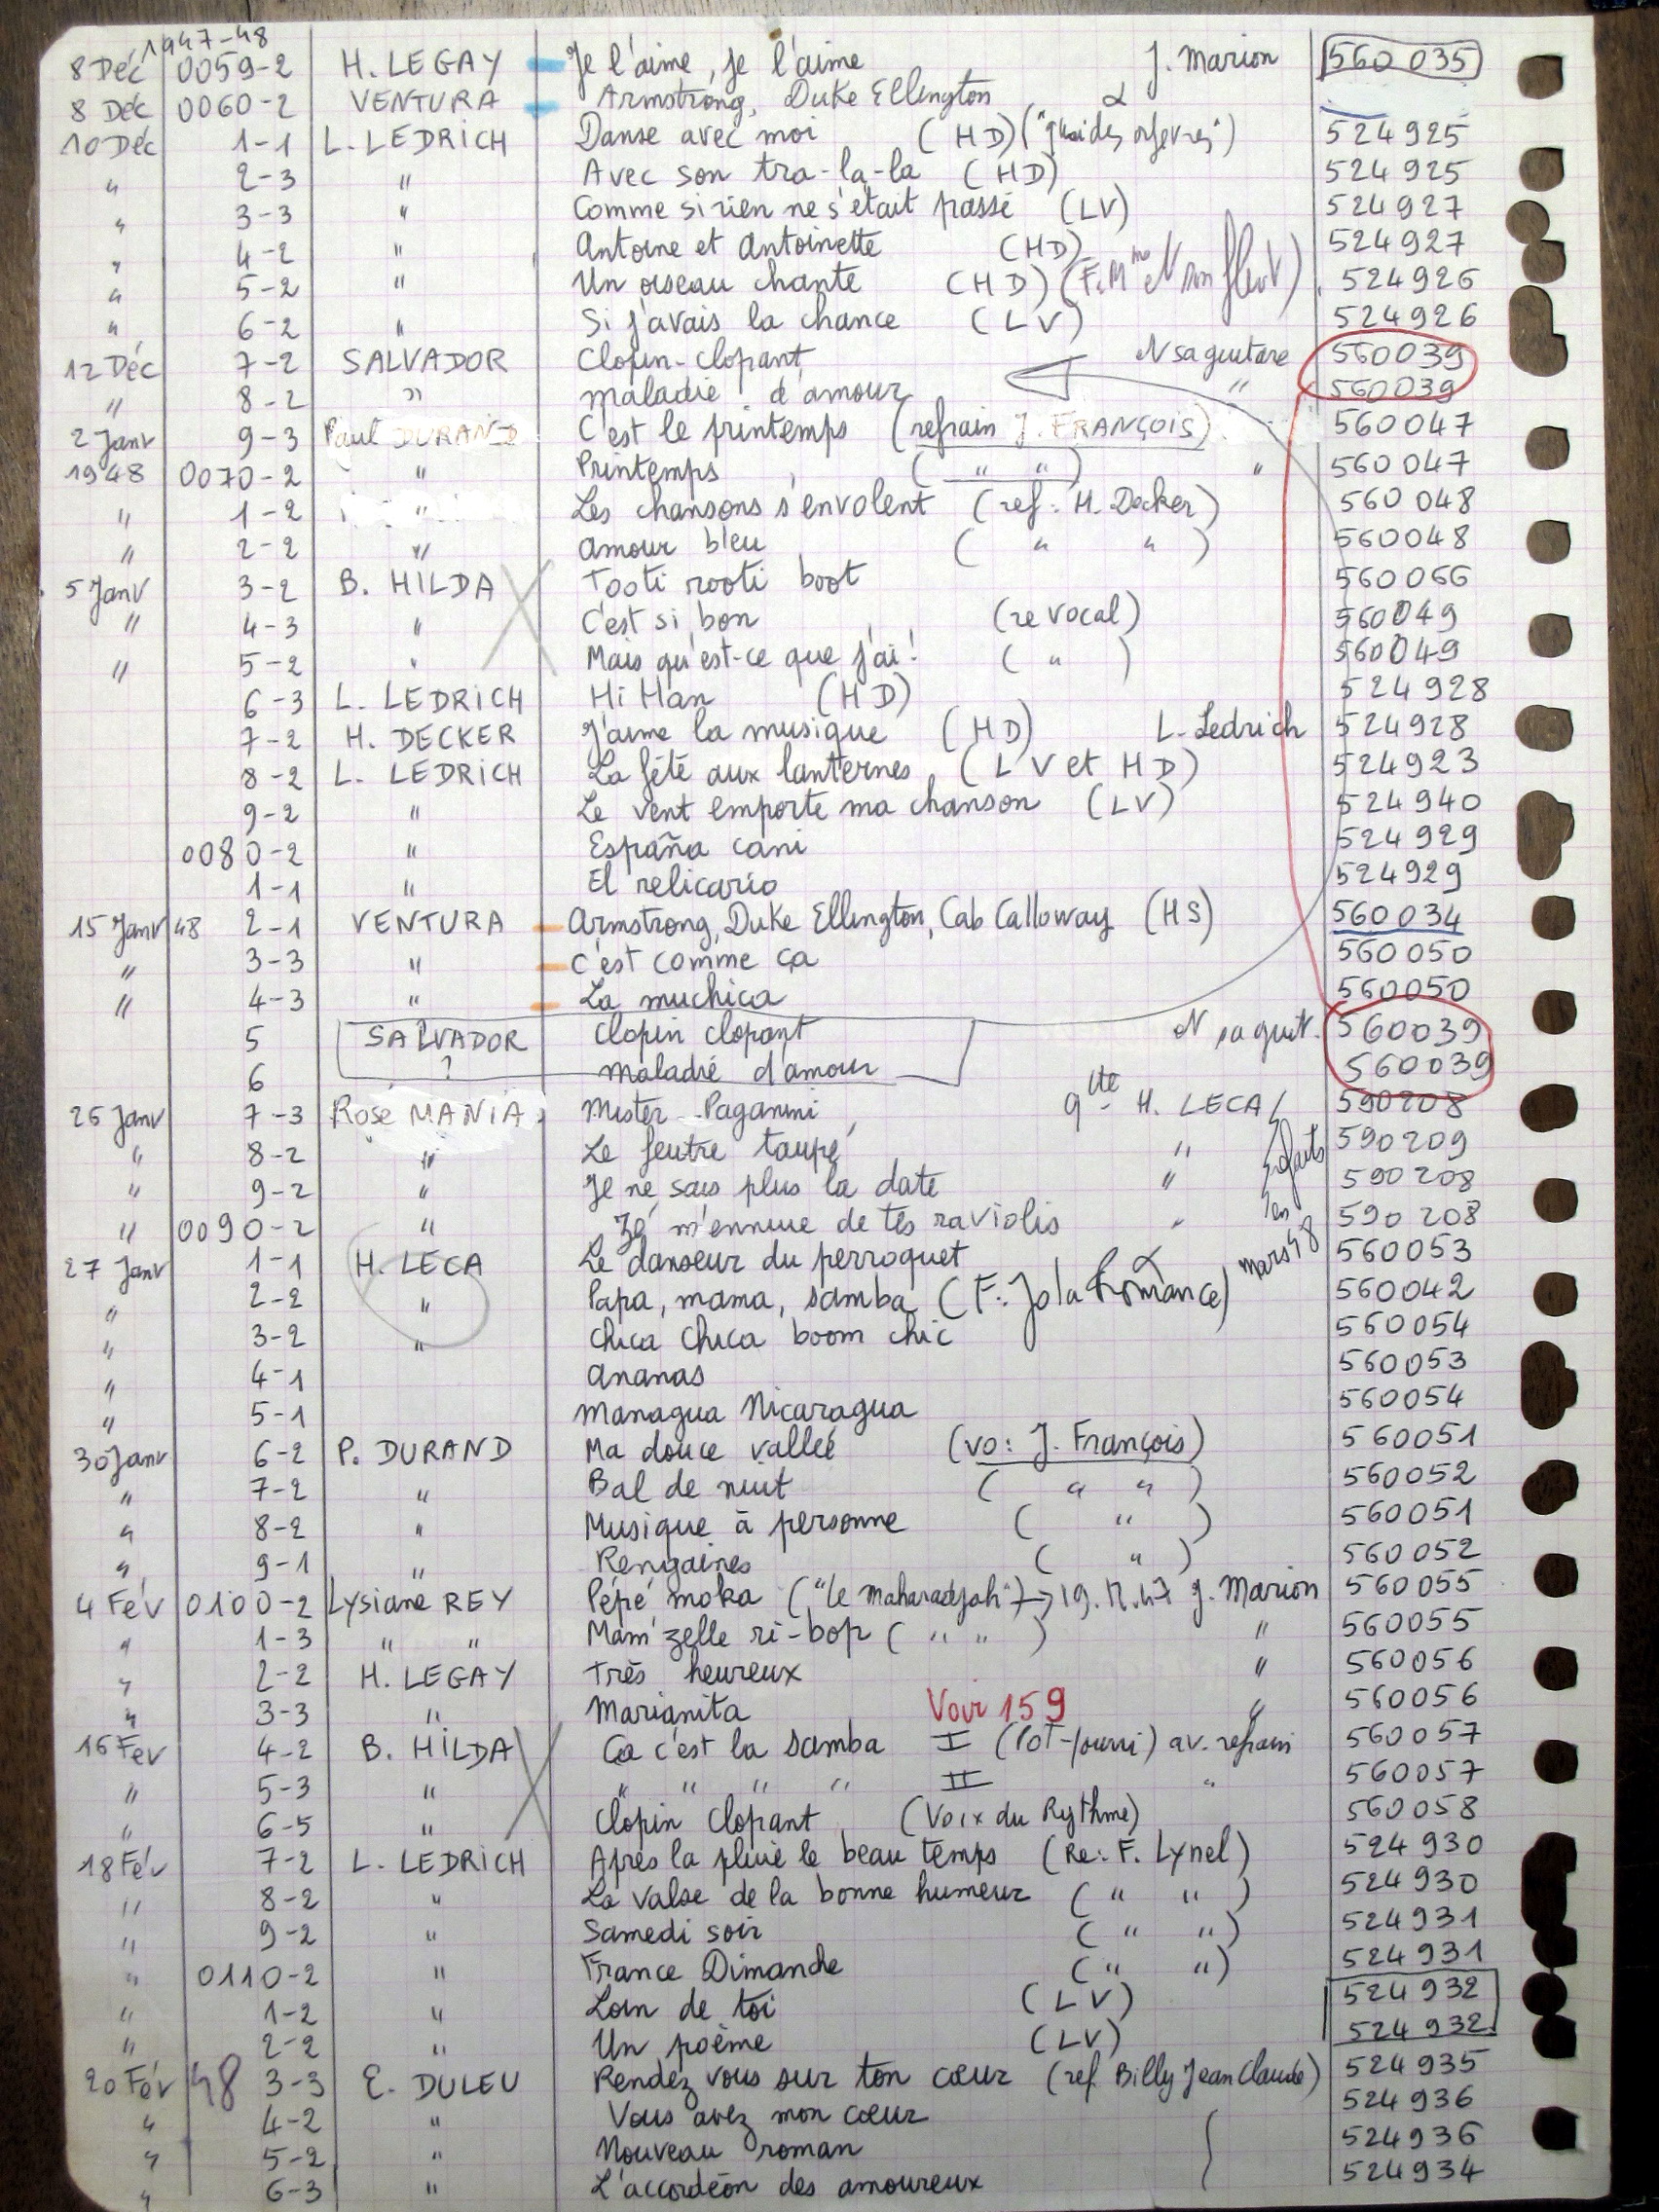 1947-48
8 Déc 0059-2 H. LEGAY Je l'aime, je l'aime J. Marion 560 035
8 Déc 0060-2 VENTURA Armstrong, Duke Ellington α
10 Déc 1-1 L. LEDRICH Danse avec moi (HD) ("quai des orfevres") 524925
" 2-3 " Avec son tra-la-la (HD) 524925
" 3-3 " Comme si rien ne s'était passé (LV) 524927
" 4-2 " Antoine et Antoinette (HD) 524927
" 5-2 " Un oiseau chante (HD) 524926
" 6-2 " Si j'avais la chance (LV) 524926
12 Déc 7-2 SALVADOR Clopin-Clopant N sa guitare 560039
" 8-2 " maladie d'amour " 560039
2 Janv 9-3 Paul DURAND C'est le printemps (refrain J. FRANÇOIS) 560047
1948 0070-2 " Printemps ( " " ) " 560047
" 1-2 " Les chansons s'envolent (ref: H. Decker) 560 048
" 2-2 " Amour bleu ( " " ) 560048
5 Janv 3-2 B. HILDA Tooti rooti boot 560066
" 4-3 " C'est si bon (re vocal) 560049
" 5-2 " Mais qu'est-ce que j'ai! ( " ) 560049
6-3 L. LEDRICH Hi Han (HD) 524928
7-2 H. DECKER J'aime la musique (HD) L. Ledrich 524928
8-2 L. LEDRICH La fête aux lanternes (LV et HD) 524923
9-2 " Le vent emporte ma chanson (LV) 524940
0080-2 " España cani 524929
1-1 " El relicario 524929
15 Janv 48 2-1 VENTURA Armstrong, Duke Ellington, Cab Calloway (HS) 560034
" 3-3 " C'est comme ça 560050
" 4-3 " La muchica 560050
5 SALVADOR Clopin clopant N sa guit. 560039
6 ? maladie d'amour 560039
26 Janv 7-3 Rose MANIA Mister Paganini qtte H. LECA 590208
" 8-2 " Le feutre taupé " 590209
" 9-2 " Je ne sais plus la date " 590208
" 0090-2 " Zé m'ennuie de tes raviolis " 590208
en mars 48
27 Janv 1-1 H. LECA Le danseur du perroquet 560053
" 2-2 " Papa, mama, samba (F: Jo la Romance) 560042
" 3-2 " Chica Chica boom chic 560054
" 4-1 Ananas 560053
" 5-1 Managua Nicaragua 560054
30 Janv 6-2 P. DURAND Ma douce vallée (vo: J. François) 560051
" 7-2 " Bal de nuit ( " " ) 560052
" 8-2 " Musique à personne ( " ) 560051
" 9-1 " Rengaines ( " ) 560052
4 Fév 0100-2 Lysiane REY Pépé moka ("le maharadjah") → 19.12.47 J. Marion 560055
" 1-3 " " Mam'zelle ri-bop ( " " ) " 560055
" 2-2 H. LEGAY Très heureux " 560056
" 3-3 " Marianita Voir 159 " 560056
16 Fev 4-2 B. HILDA Ca c'est la samba I (Pot-pourri) av. refrain 560057
" 5-3 " " " " " II " 560057
" 6-5 " Clopin Clopant (Voix du Rythme) 560058
18 Fév 7-2 L. LEDRICH Après la pluie le beau temps (Re: F. Lynel) 524930
" 8-2 " La valse de la bonne humeur ( " " ) 524930
" 9-2 " Samedi soir ( " " ) 524931
" 0110-2 " France Dimanche ( " " ) 524931
" 1-2 " Loin de toi (LV) 524932
" 2-2 " Un poème (LV) 524932
20 Fév 48 3-3 E. DULEU Rendez vous sur ton cœur (ref Billy Jean Claude) 524935
" 4-2 " Vous avez mon cœur 524936
" 5-2 " Nouveau roman 524936
" 6-3 " L'accordéon des amoureux 524934